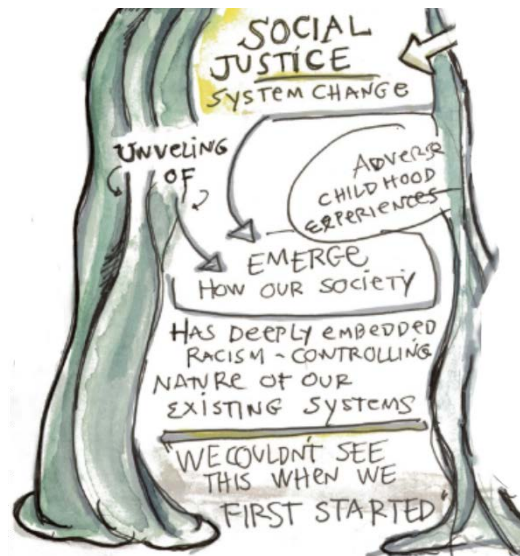 SOCIAL
JUSTICE
SYSTEM CHANGE
UNVELING
OF
ADVERSE
CHILDHOOD
EXPERIENCES
EMERGE
HOW OUR SOCIETY
HAS DEEPLY EMBEDDED
RACISM - CONTROLLING
NATURE OF OUR
EXISTING SYSTEMS
"WE COULDN'T SEE
THIS WHEN WE
FIRST STARTED"